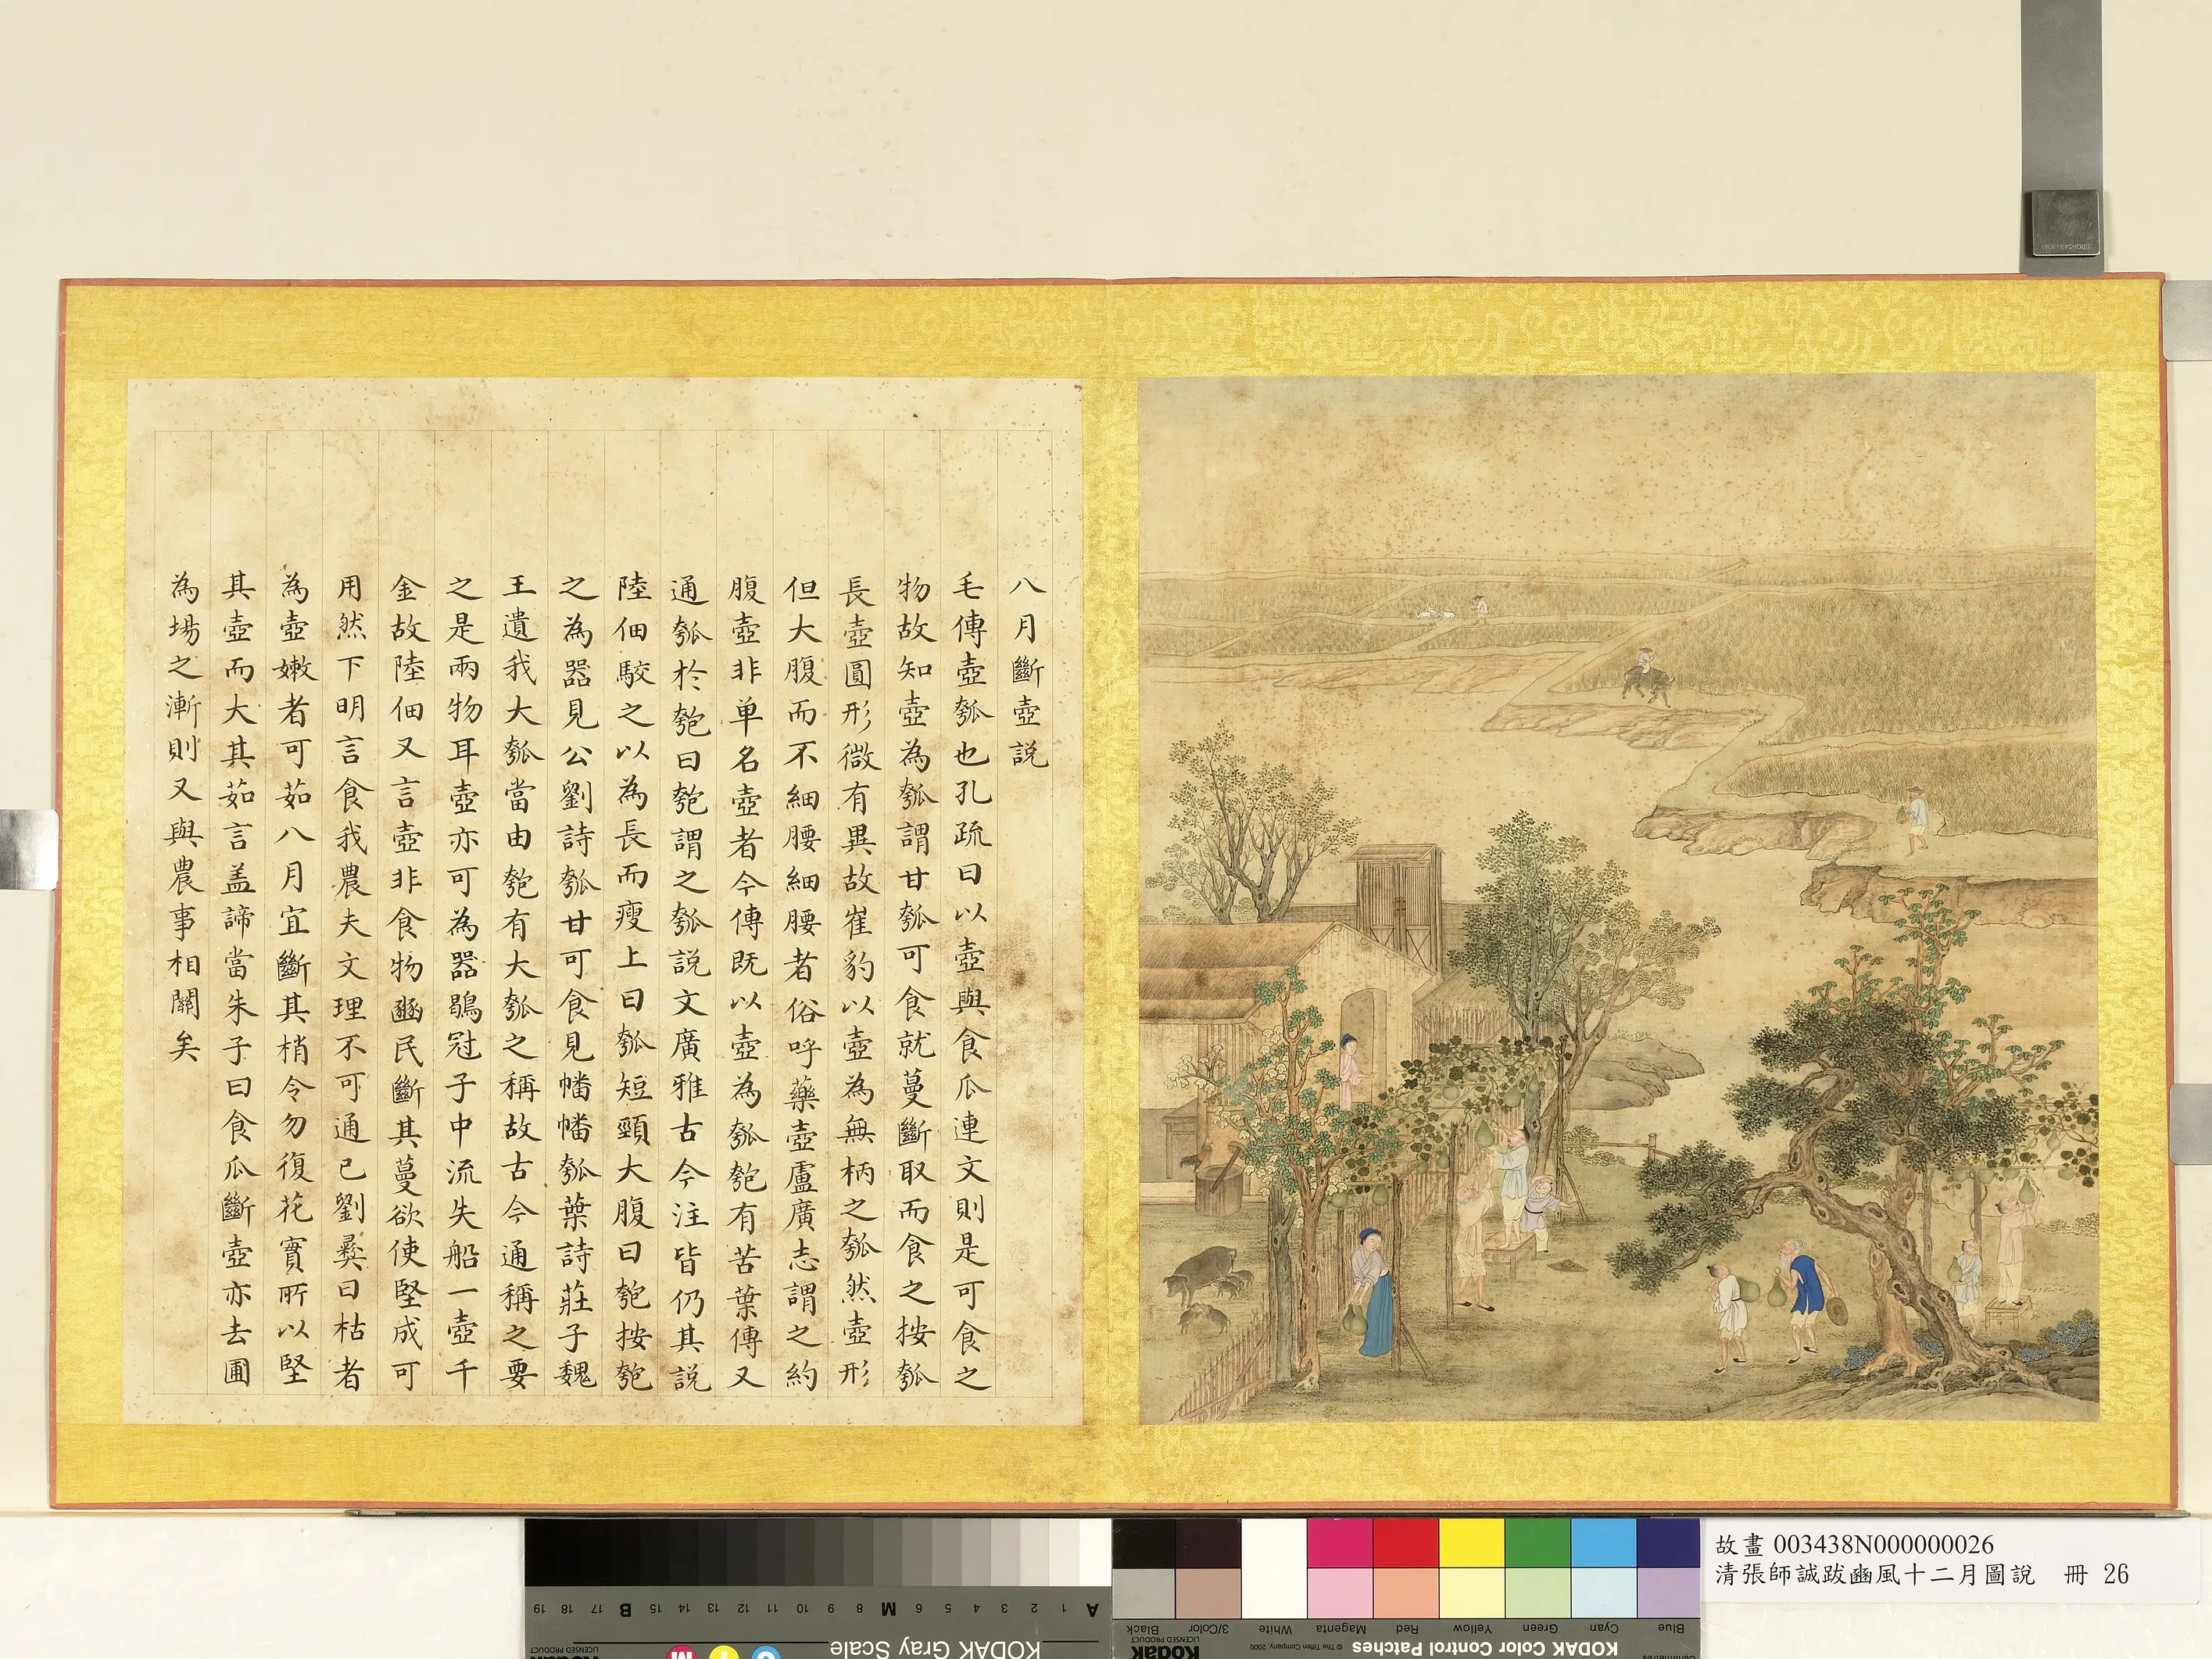 八月斷壺説
毛傳壺瓠也孔疏曰以壺與食瓜連文則是可食之
物故知壺為瓠謂甘瓠可食就蔓斷取而食之按瓠
長壺圓形微有異故崔豹以壺為無柄之瓠然壺形
但大腹而不細腰細腰者俗呼藥壺盧廣志謂之約
腹壺非单名壺者今傳既以壺為瓠匏有苦葉傳又
通瓠於匏曰匏謂之瓠説文廣雅古今注皆仍其説
陸佃駮之以為長而瘦上曰瓠短頸大腹曰匏按匏
之為器見公劉詩瓠甘可食見幡幡瓠葉詩莊子魏
王遺我大瓠當由匏有大瓠之稱故古今通稱之要
之是兩物耳壺亦可為器鶡冠子中流失船一壺千
金故陸佃又言壺非食物豳民斷其蔓欲使堅成可
用然下明言食我農夫文理不可通已劉彝曰枯者
為壺嫩者可茹八月宜斷其梢令勿復花實所以堅
其壺而大其茹言盖諦當朱子曰食瓜斷壺亦去圃
為場之漸則又與農事相關矣
故畫 003438N000000026
清張師誠跋豳風十二月圖說 冊 26
KODAK Gray Scale
A 1 2 3 4 5 6 M 8 9 10 11 12 13 14 15 B 17 18 19
KODAK Color Control Patches
© The Tiffen Company, 2000
Kodak
LICENSED PRODUCT
Blue Cyan Green Yellow Red Magenta White 3/Color Black